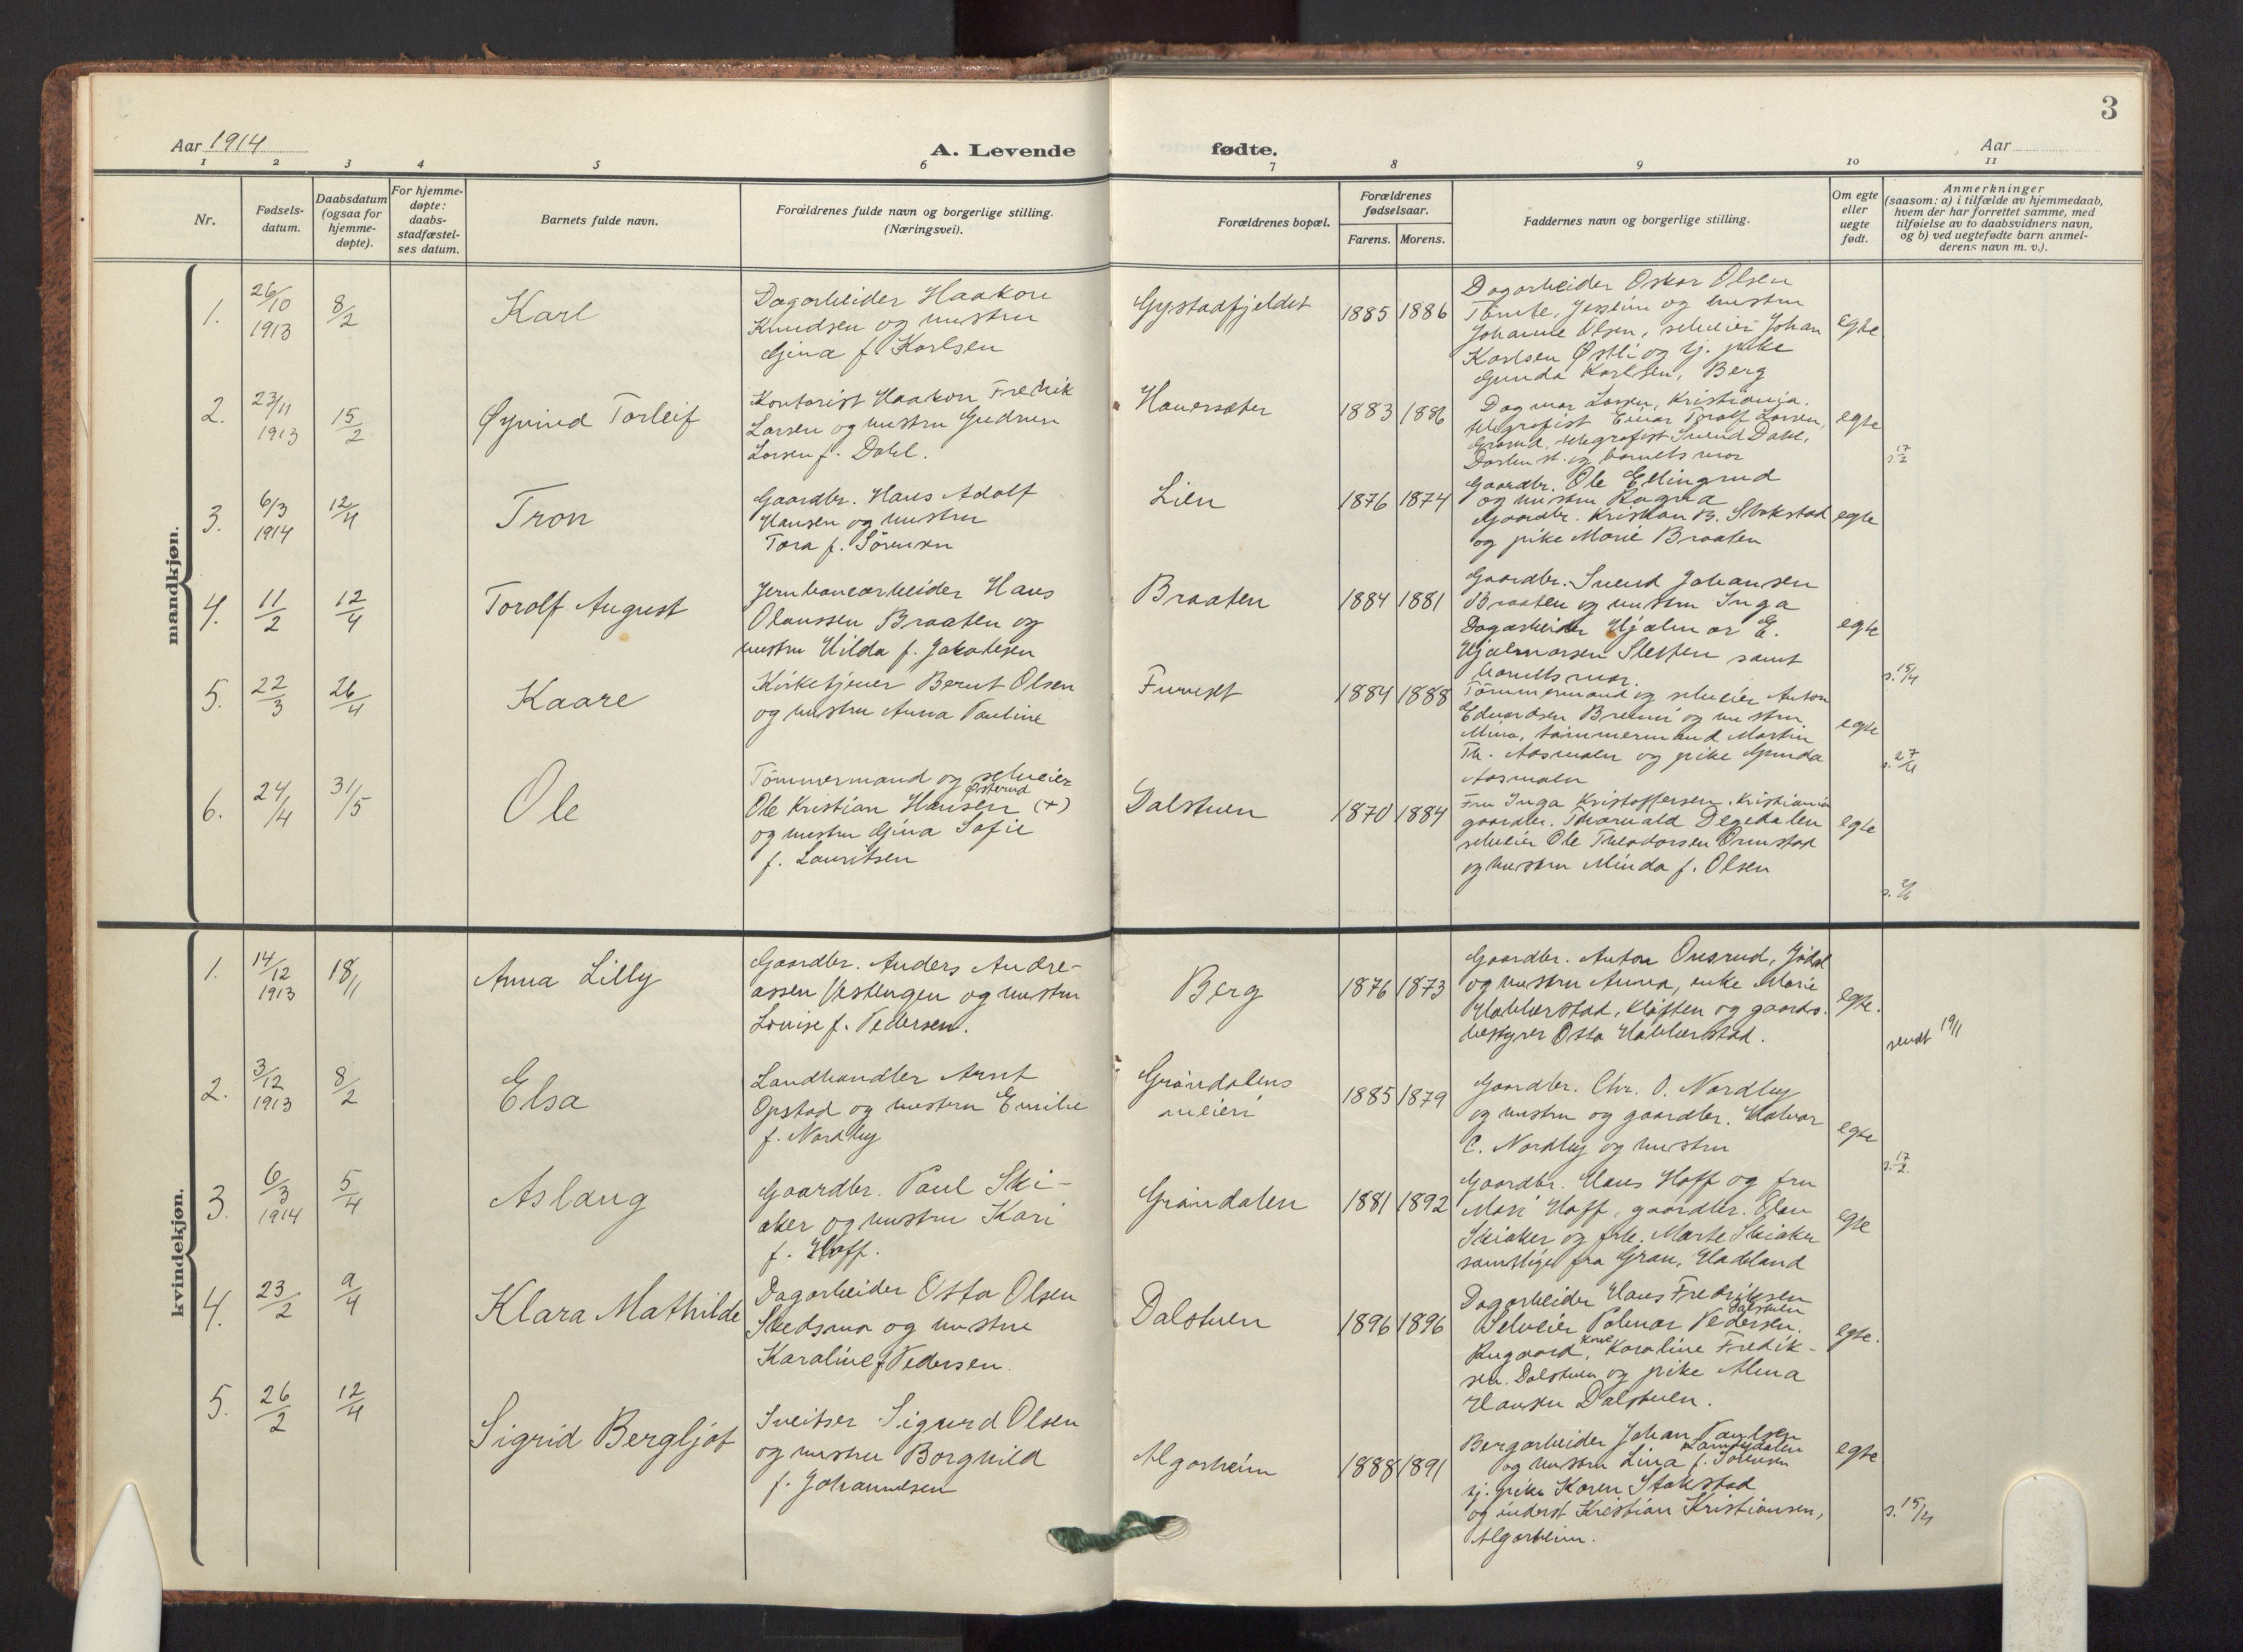 3
Aar 1914
A. Levende fødte.
Aar
1 2 3 4 5 6 7 8 9 10 11
Nr.
Fødsels-
datum.
Daabsdatum
(ogsaa for
hjemme-
døpte).
For hjemme-
døpte:
daabs-
stadfæstel-
ses datum.
Barnets fulde navn.
Forældrenes fulde navn og borgerlige stilling.
(Næringsvei).
Forældrenes bopæl.
Forældrenes
fødselsaar.
Farens. Morens.
Faddernes navn og borgerlige stilling.
Om egte
eller
uegte
født.
Anmerkninger
(saasom: a) i tilfælde av hjemmedaab,
hvem der har forrettet samme, med
tilføielse av to daabsvidners navn,
og b) ved uegtefødte barn anmel-
derens navn m. v.).
mandkjøn.
1.
26/10
1913
8/2
Karl
Dagarbeider Haakon
Knudsen og hustru
Gina f. Karlsen
Gystadfjeldet
1885 1886
Dagarbeider Oskar Olsen
Jessheim og hustru
Johanne Olsen, selveier Johan
Karlsen Østli og tj. pike
Gunda Karlsen, Berg
egte
2.
23/11
1913
15/2
Øyvind Torleif
Kontorist Haakon Fredrik
Larsen og hustru Gudrun
Larsen f. Dahl.
Hauersæter
1883 1886
Dagmar Larsen, Kristiania.
telegrafist Einar Torolf Larsen,
telegrafist Svend Dahl,
st. og barnets mor
egte
s. 17/2
3.
6/3
1914
12/4
Tron
Gaardbr. Hans Adolf
Hansen og hustru
Tora f. Sørensen
Lien
1876 1874
Gaardbr. Ole Ellingrud
og hustru Ragna
Gaardbr. Kristian B. Stokstad
og pike Marie Braaten
egte
4.
11/2
12/4
Torolf August
Jernbanearbeider Hans
Olaussen Braaten og
hustru Hilda f. Jakobsen
Braaten
1884 1881
Gaardbr. Svend Johansen
Braaten og hustru Inga
Dagarbeider Hjalmar E.
Hjalmarsen Sletten samt
barnets mor.
egte
s. 15/4
5.
22/3
26/4
Kaare
Kirketjener Bernt Olsen
og hustru Anna Pauline
Furuset
1884 1888
Tømmermand og selveier Anton
Edvardsen og hustru
Mina, tømmermand Martin
Th. Aasmalen og pike Gunda
Aasmalen
egte
s. 27/4
6.
24/4
31/5
Ole
Tømmermand og selveier
Østerud
Ole Kristian Hansen (+)
og hustru Gina Sofie
f. Lauritsen
Dalstuen
1870 1884
Fru Inga Kristoffersen, Kristiania
gaardbr. Thorvald Degedalen
selveier Ole Theodorsen Ormstad
og hustru Minda f. Olsen
egte
s. 2/6
kvindekjøn.
1.
14/12
1913
18/1
Anna Lilly
Gaardbr. Anders Andre-
assen Vestengen og hustru
Louise f. Pedersen.
Berg
1876 1873
Gaardbr. Anton Onsrud, Jødal
og hustru Anna, enke Marie
Habberstad, Kløften og gaards-
bestyrer Otto Habberstad.
egte.
sendt 19/1
2.
3/12
1913
8/2
Elsa
Landhandler Arnt
Opstad og hustru Emilie
f. Nordby
Grøndalens
meieri
1885 1879
Gaardbr. Chr. O. Nordby
og hustru og gaardbr. Halvor
C. Nordby og hustru
egte
s. 17/2
3.
6/3
1914
5/4
Aslaug
Gaardbr. Paul Ski-
aker og hustru Kari
f. Hoff.
Grøndalen
1881 1892
Gaardbr. Hans Hoff og fru
Mari Hoff, gaardbr. Elen
Skiaker og frk. Marte Skiaker
samtlige fra Gran, Hadeland
egte
4.
23/2
9/4
Klara Mathilde
Dagarbeider Otto Olsen
Skedsmo og hustru
Karoline f. Pedersen.
Dalstuen
1896 1896
Dagarbeider Hans Fredriksen
Dalstuen
Selveier Palmar Pedersen.
Rugaard, kone Karoline Fredik-
sen. Dalstuen og pike Alma
Hansen Dalstuen.
egte.
5.
26/2
12/4
Sigrid Bergljot
Sveitser Sigurd Olsen
og hustru Borghild
f. Johannesen
Algarheim
1888 1891
Bergarbeider Johan Paulsen
og hustru Lina f. Sørensen
tj. pike Karen Stokstad
og inderst Kristian Kristiansen,
Algarheim.
egte
s. 15/4